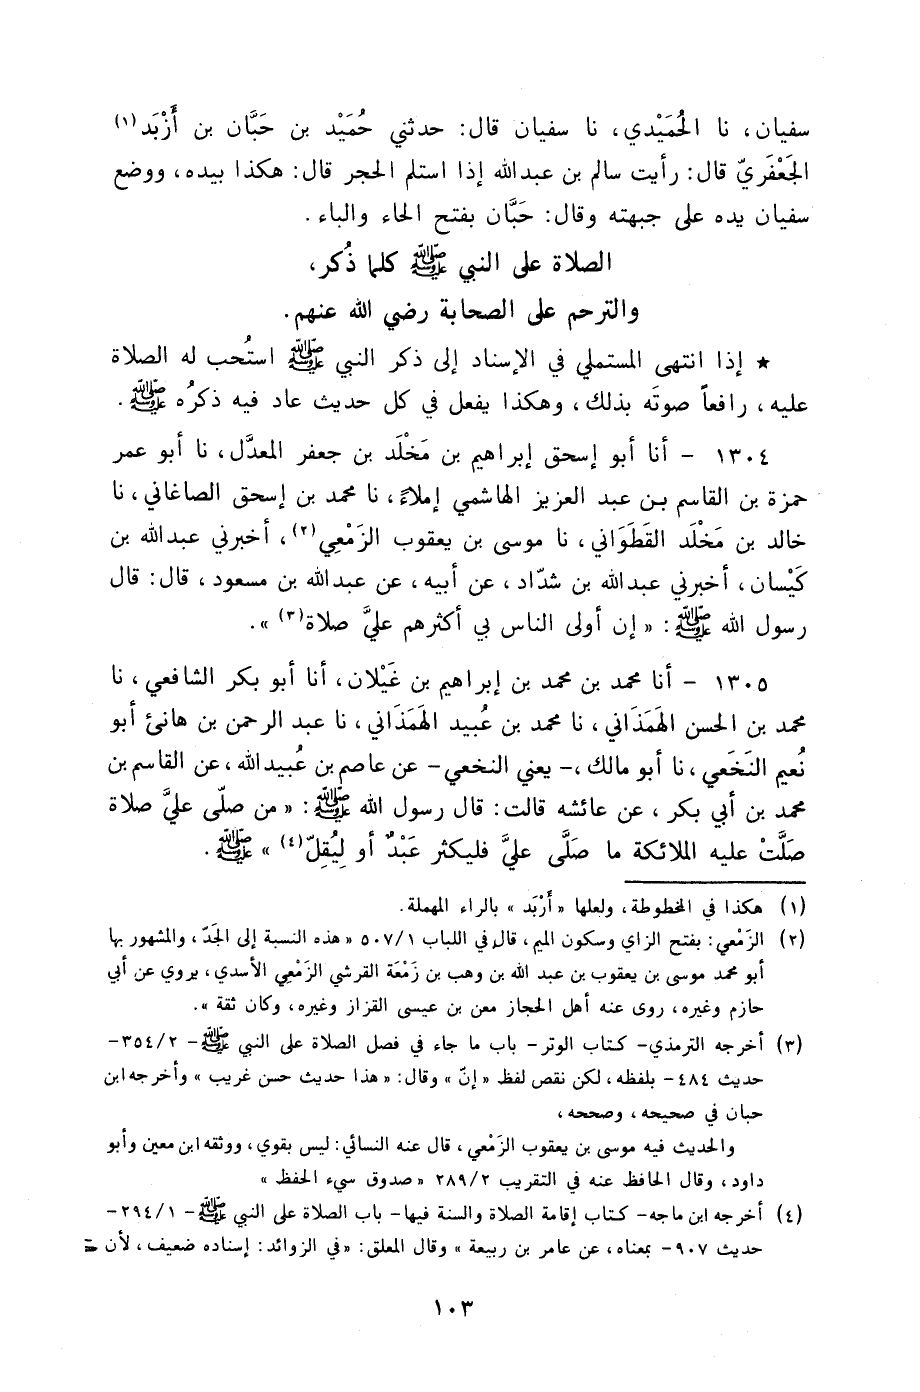 سفيان، نا الحُمَيْدي، نا سفيان قال: حدثني حُمَيْد بن حَبَّان بن أَزْبَد(١)
الجَعْفَريّ قال: رأيت سالم بن عبدالله إذا استلم الحجر قال: هكذا بيده، ووضع
سفيان يده على جبهته وقال: حَبَّان بفتح الحاء والباء.
الصلاة على النبي ﷺ كلما ذُكر،
والترحم على الصحابة رضي الله عنهم.
★ إذا انتهى المستملي في الإسناد إلى ذكر النبي ﷺ استُحب له الصلاة
عليه، رافعاً صوتَه بذلك، وهكذا يفعل في كل حديث عاد فيه ذكرُه ﷺ.
١٣٠٤ - أنا أبو إسحق إبراهيم بن مَخْلَد بن جعفر المعدَّل، نا أبو عمر
حمزة بن القاسم بن عبد العزيز الهاشمي إملاءً، نا محمد بن إسحق الصاغاني، نا
خالد بن مَخْلَد القَطَوَاني، نا موسى بن يعقوب الزَمْعِي(٢)، أخبرني عبدالله بن
كَيْسان، أخبرني عبدالله بن شدّاد، عن أبيه، عن عبدالله بن مسعود، قال: قال
رسول الله ﷺ: « إن أولى الناس بي أكثرهم عليَّ صلاة(٣) ».
١٣٠٥ - أنا محمد بن محمد بن إبراهيم بن غَيْلان، أنا أبو بكر الشافعي، نا
محمد بن الحسن الهَمَذَاني، نا محمد بن عُبيد الهَمَذَاني، نا عبد الرحمن بن هانئ أبو
نُعيم النَخَعي، نا أبو مالك، - يعني النخعي - عن عاصم بن عُبيدالله، عن القاسم بن
محمد بن أبي بكر، عن عائشه قالت: قال رسول الله ﷺ: « من صلّى عليَّ صلاة
صَلَّتْ عليه الملائكة ما صَلَّى عليَّ فليكثر عَبْدٌ أو لِيُقِلّ(٤) » ﷺ.
(١) هكذا في المخطوطة، ولعلها « أَرْبَد » بالراء المهملة.
(٢) الزَمْعي: بفتح الزاي وسكون الميم، قال في اللباب ٥٠٧/١ « هذه النسبة إلى الجَدّ، والمشهور بها
أبو محمد موسى بن يعقوب بن عبد الله بن وهب بن زَمْعَة القرشي الزَمْعِي الأسدي، يروي عن أبي
حازم وغيره، روى عنه أهل الحجاز معن بن عيسى القزاز وغيره، وكان ثقة ».
(٣) أخرجه الترمذي - كتاب الوتر - باب ما جاء في فصل الصلاة على النبي ﷺ - ٣٥٤/٢ -
حديث ٤٨٤ - بلفظه، لكن نقص لفظ « إنّ » وقال: « هذا حديث حسن غريب » وأخرجه ابن
حبان في صحيحه، وصححه،
والحديث فيه موسى بن يعقوب الزَمْعي، قال عنه النسائي: ليس بقوي، ووثقه ابن معين وأبو
داود، وقال الحافظ عنه في التقريب ٢٨٩/٢ « صدوق سيء الحفظ »
(٤) أخرجه ابن ماجه - كتاب إقامة الصلاة والسنة فيها - باب الصلاة على النبي ﷺ - ٢٩٤/١ -
حديث ٩٠٧ - بمعناه، عن عامر بن ربيعة » وقال المعلق: « في الزوائد: إسناده ضعيف، لأن =
١٠٣